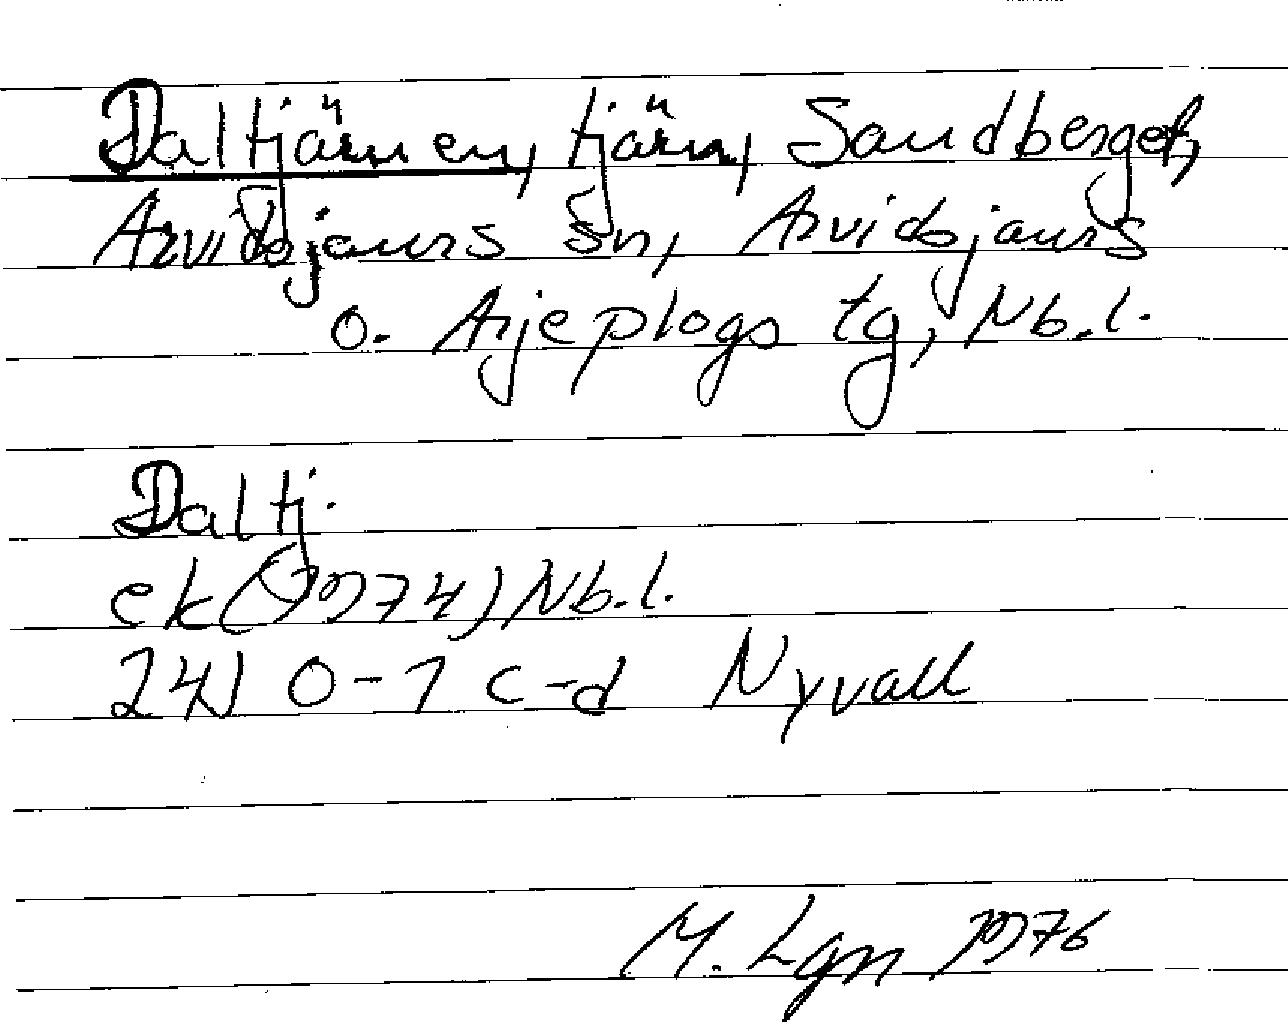 Daltjärnen, tjärn, Sandberget,
Arvidsjaurs sn, Arvidsjaurs
o. Arjeplogs tg, Nb.l.
Daltj.
ek (1974) Nb.l.
24J 0-1 c-d Nyvall
M. Lgn 1976